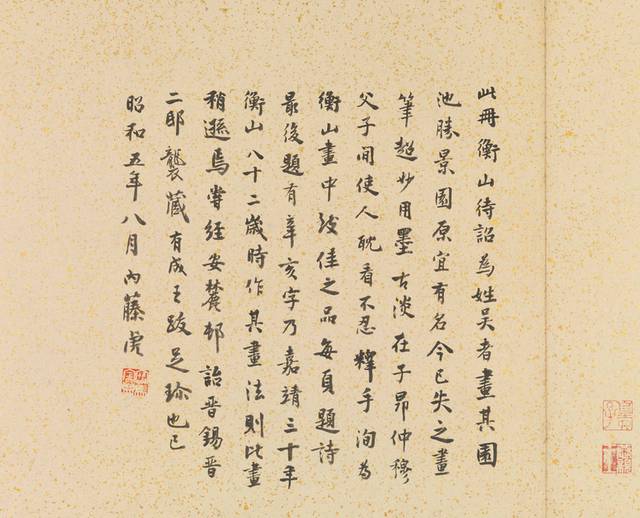 此冊衡山待詔為姓吳者畫其園
池勝景園原宜有名今已失之畫
筆超妙用墨古淡在子昂仲穆
父子間使人耽看不忍釋手洵為
衡山畫中致佳之品每頁題詩
最後題有辛亥字乃嘉靖三十年
衡山八十二歲時作其書法則比畫
稍遜焉嘗經安麓邨詒晋錫晋
二邸襲藏有成王跋足珍也已
昭和五年八月內藤虎